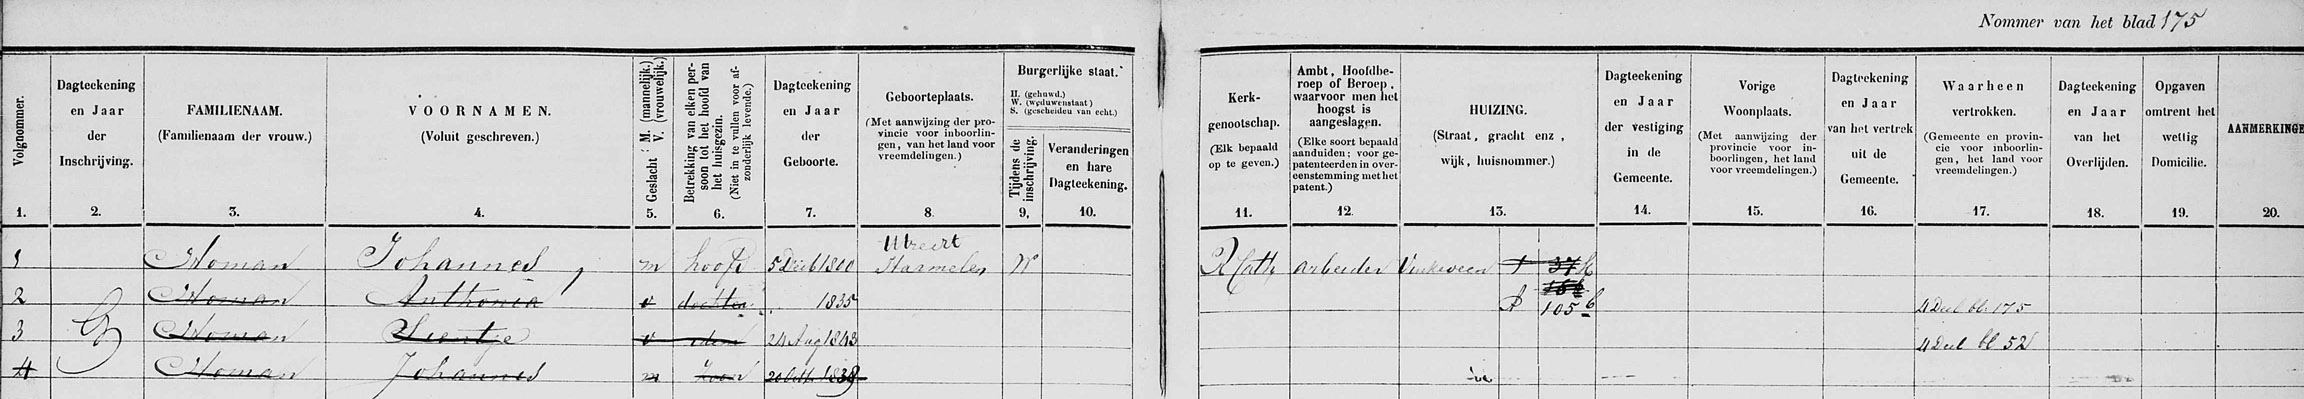 Nommer van het blad 175
Volgnommer.
Dagteekening
en Jaar
der
Inschrijving.
FAMILIENAAM.
(Familienaam der vrouw.)
VOORNAMEN.
(Voluit geschreven.)
Geslacht: M. (mannelijk.)
V. (vrouwelijk.)
Betrekking van elken per-
soon tot het hoofd van
het huisgezin.
(Niet in te vullen voor af-
zonderlijk levende.)
Dagteekening
en Jaar
der
Geboorte.
Geboorteplaats.
(Met aanwijzing der pro-
vincie voor inboorlin-
gen, van het land voor
vreemdelingen.)
Burgerlijke staat.
H. (gehuwd.)
W. (weduwenstaat)
S. (gescheiden van echt.)
Tijdens de
inschrijving.
Veranderingen
en hare
Dagteekening.
Kerk-
genootschap.
(Elk bepaald
op te geven.)
Ambt, Hoofdbe-
roep of Beroep,
waarvoor men het
hoogst is
aangeslagen.
(Elke soort bepaald
aanduiden; voor ge-
patenteerden in over-
eenstemming met het
patent.)
HUIZING.
(Straat, gracht enz,
wijk, huisnommer.)
Dagteekening
en Jaar
der vestiging
in de
Gemeente.
Vorige
Woonplaats.
(Met aanwijzing der
provincie voor in-
boorlingen, het land
voor vreemdelingen.)
Dagteekening
en Jaar
van het vertrek
uit de
Gemeente.
Waarheen
vertrokken.
(Gemeente en provin-
cie voor inboorlin-
gen, het land voor
vreemdelingen.)
Dagteekening
en Jaar
van het
Overlijden.
Opgaven
omtrent het
wettig
Domicilie.
AANMERKINGE
1. 2. 3. 4. 5. 6. 7. 8. 9. 10. 11. 12. 13. 14. 15. 16. 17. 18. 19. 20.
Utrecht
1 Homan Johannes m hoofd 5 Decb 1800 Harmelen W R Cath arbeider Vinkeveen 37
2 Homan Anthonia v dochter 1835 105 4 Deel bl. 175
3 Homan Sientje v idem 24 Aug 1843 4 Deel bl 52
4 Homan Johannes m zoon 20 1839